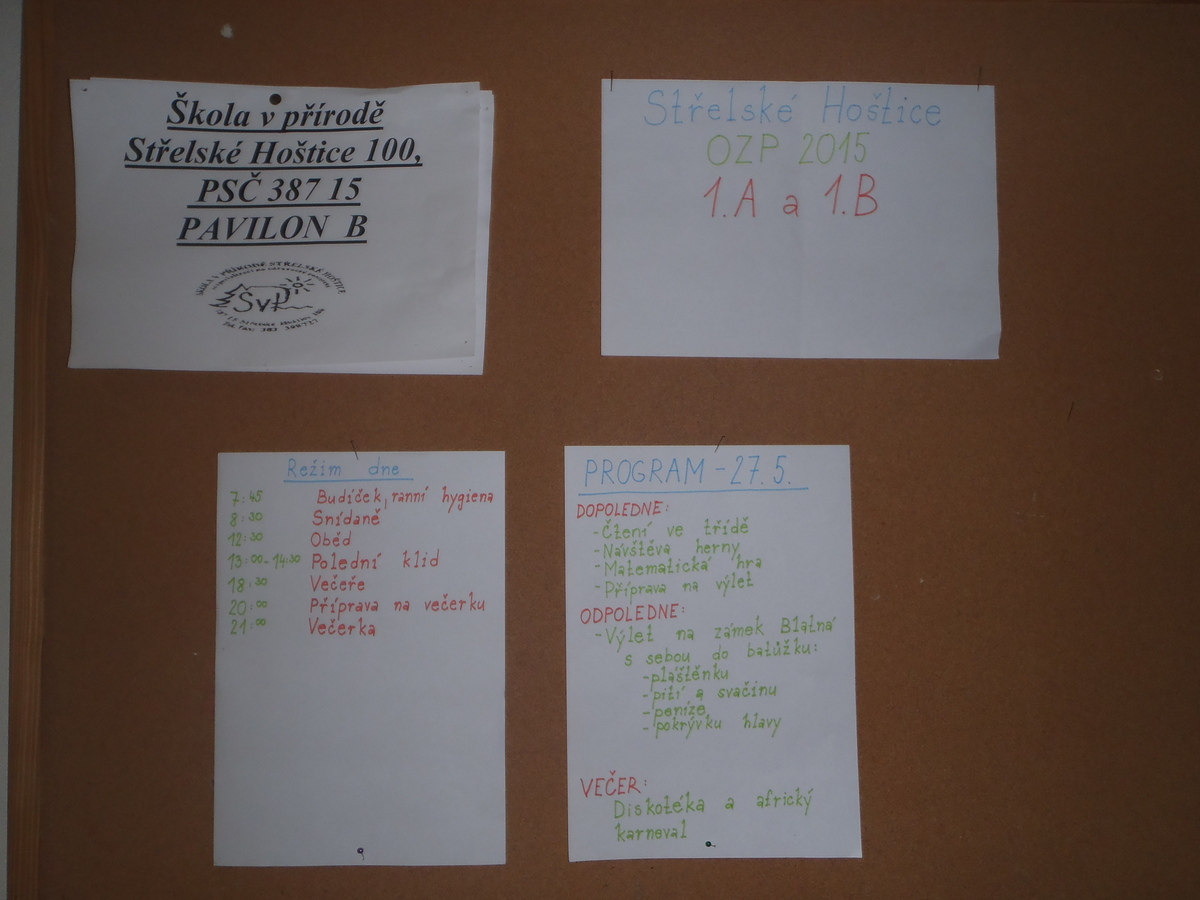 Škola v přírodě
Střelské Hoštice 100,
PSČ 387 15
PAVILON B
ŠKOLA V PŘÍRODĚ STŘELSKÉ HOŠTICE
ŠvP
Střelské Hoštice
OZP 2015
1.A a 1.B
Režim dne
7:45 Budíček, ranní hygiena
8:30 Snídaně
12:30 Oběd
13:00-14:30 Polední klid
18:30 Večeře
20:00 Příprava na večerku
21:00 Večerka
PROGRAM - 27.5.
DOPOLEDNE:
-Čtení ve třídě
-Návštěva herny
-Matematická hra
-Příprava na výlet
ODPOLEDNE:
-Výlet na zámek Blatná
s sebou do batůžku:
-pláštěnku
-pití a svačinu
-peníze
-pokrývku hlavy
VEČER:
Diskotéka a africký
karneval